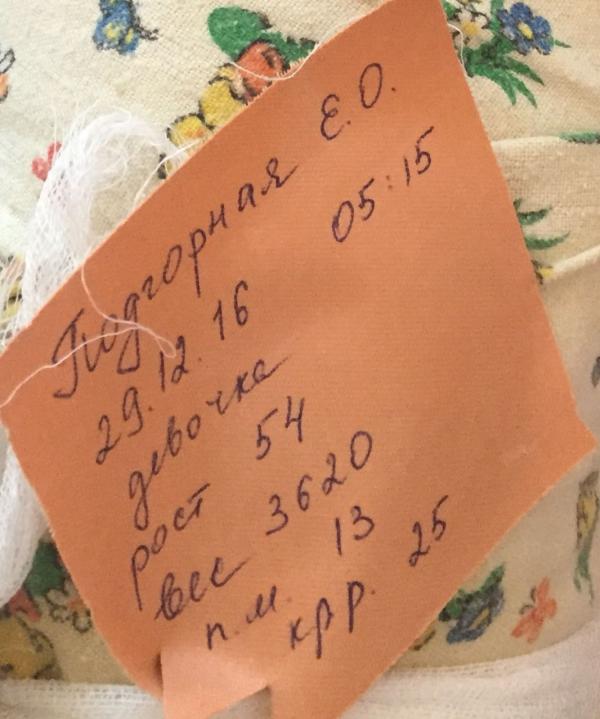 Подгорная Е.О.
29.12.16 05:15
девочка
рост 54
вес 3620
п.м. 13
крр. 25